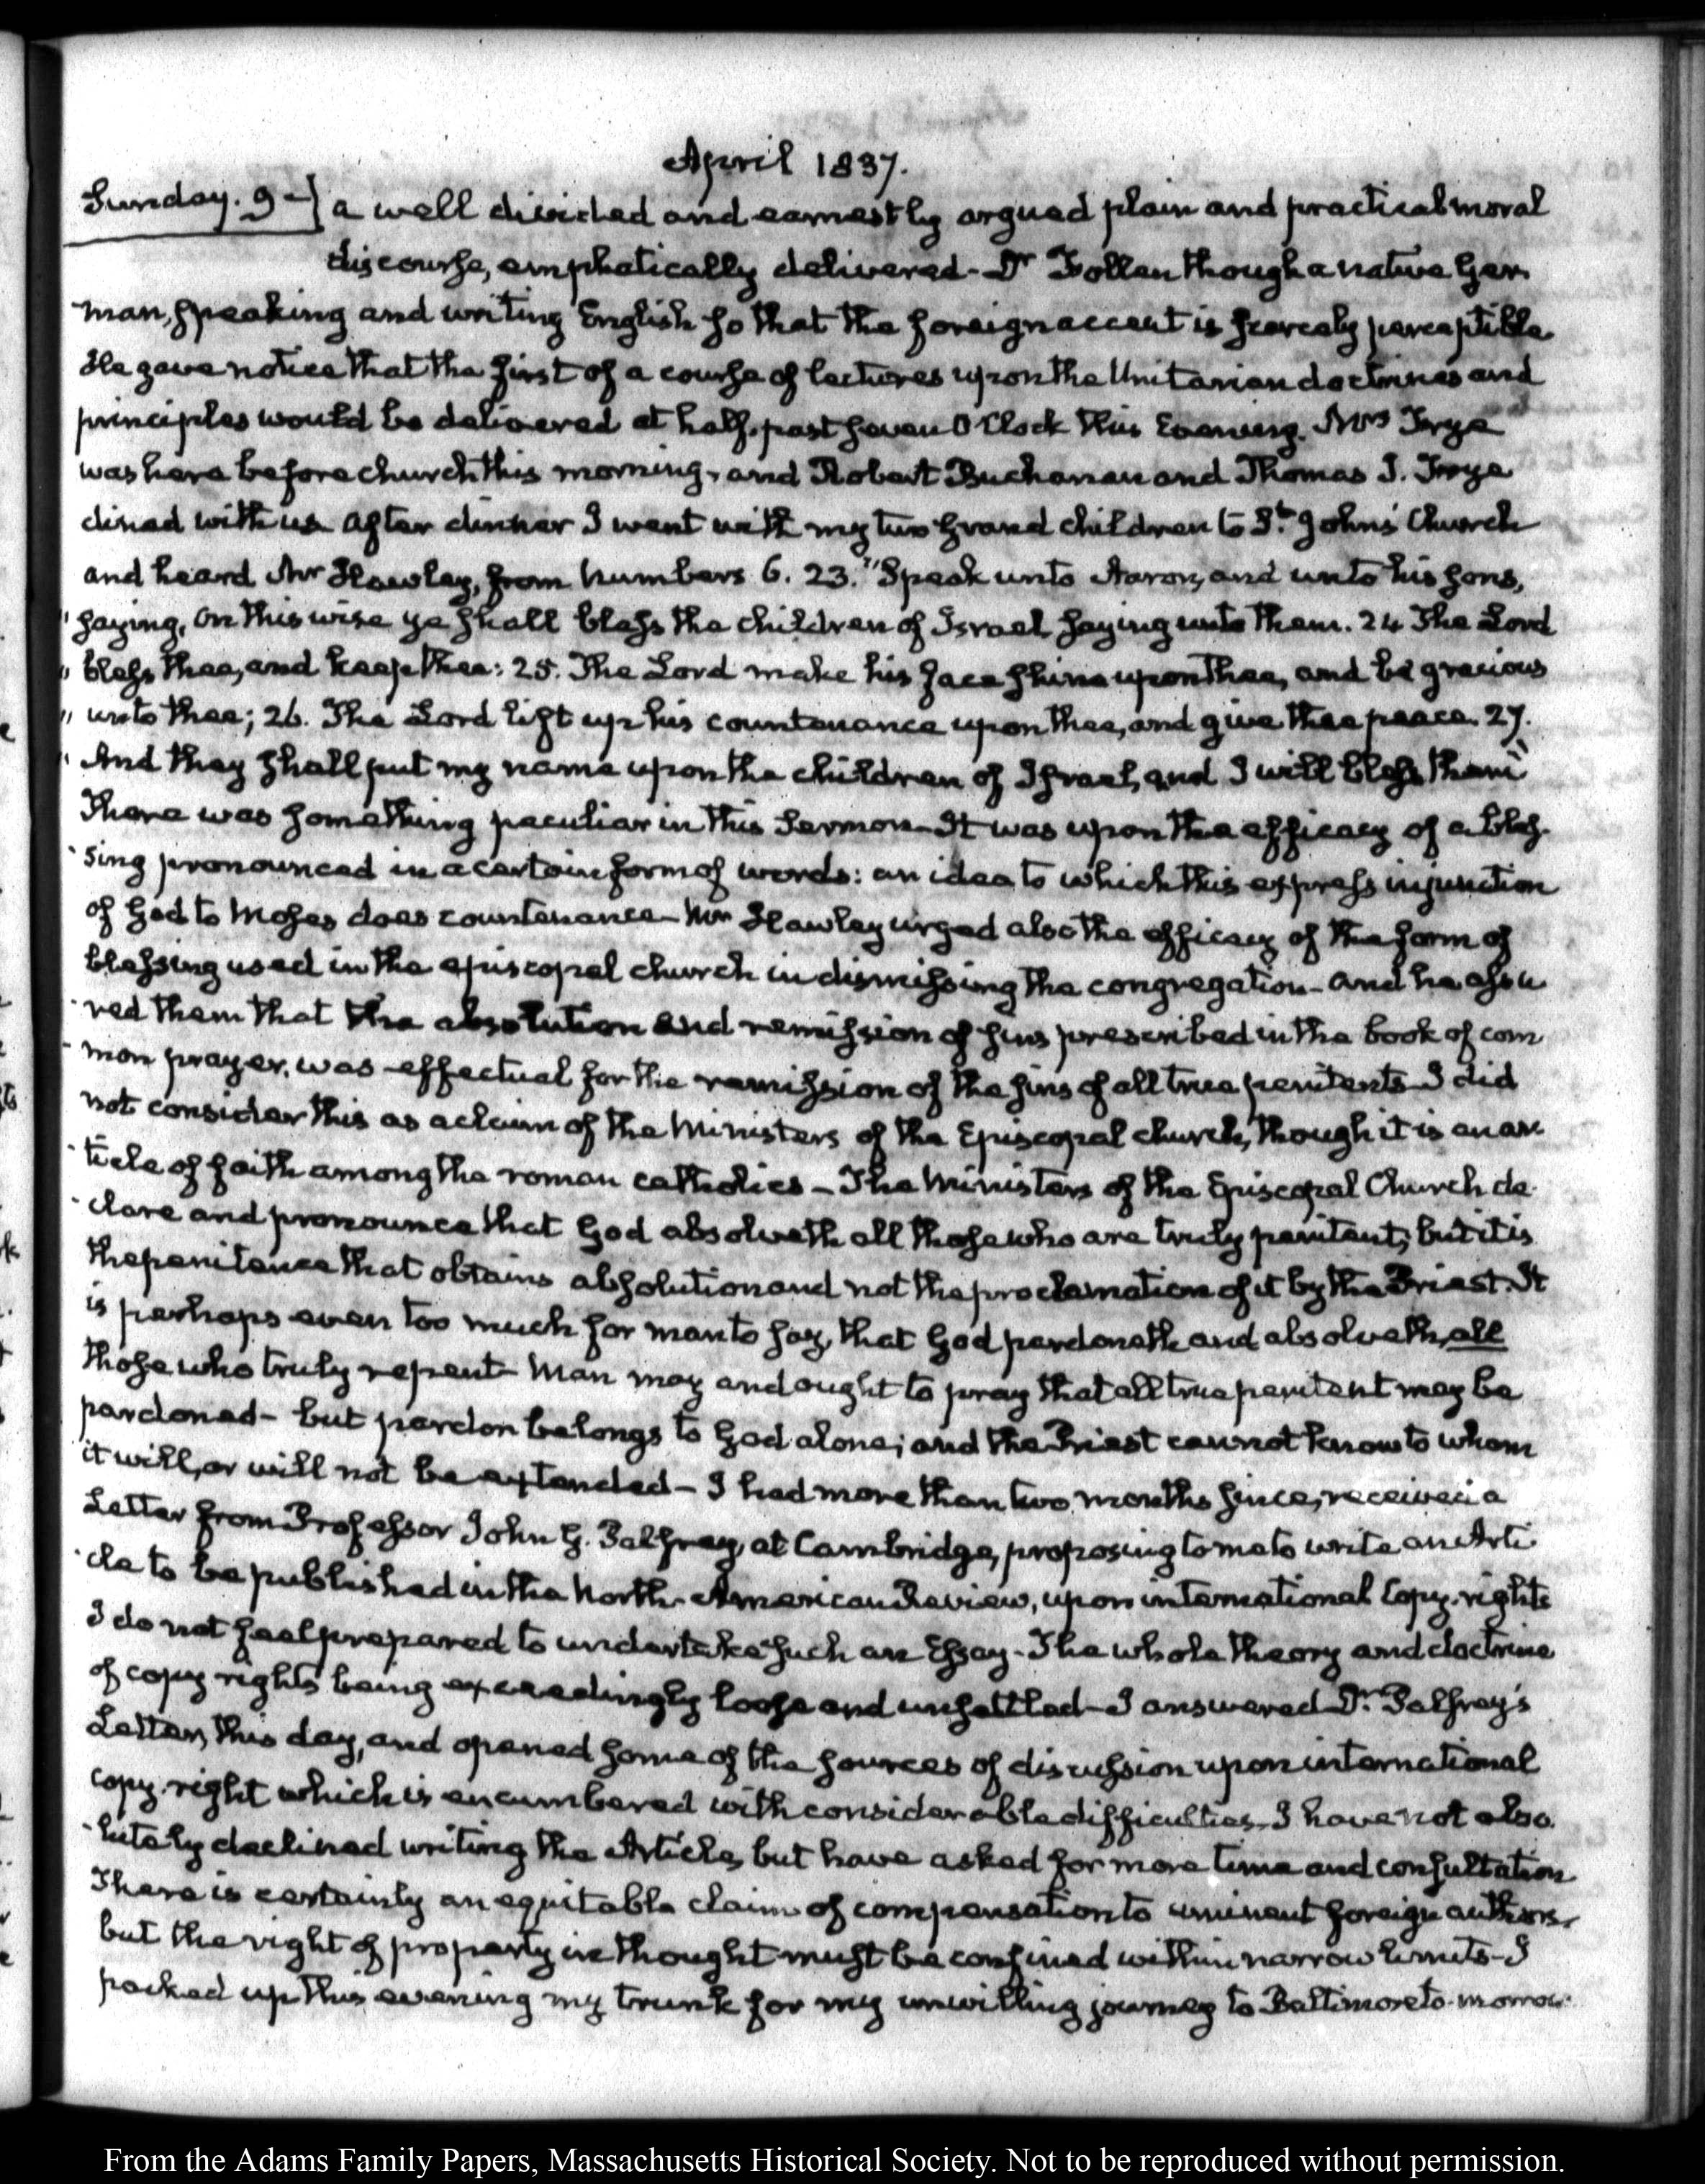 April 1837.
Sunday. 9-] a well divided and earnestly argued plain and practical moral
discourse, emphatically delivered - Dr Follen though a native Ger
-man, speaking and writing English so that the foreign accent is scarcely perceptible
He gave notice that the first of a course of lectures upon the Unitarian doctrines and
principles would be delivered at half past seven O'Clock this Evening. Mrs Frye
was here before church this morning, and Robert Buchanan and Thomas J. Frye
dined with us After dinner I went with my two Grand children to St. John's Church
and heard Mr Hawley, from Numbers 6. 23. "Speak unto Aaron, and unto his sons,
" saying, On this wise ye shall bless the children of Israel saying unto them. 24 The Lord
" bless thee, and keep thee: 25. The Lord make his face shine upon thee, and be gracious
" unto thee; 26. The Lord lift up his countenance upon thee, and give thee peace. 27.
" And they shall put my name upon the children of Israel, and I will bless them"
There was something peculiar in this Sermon - It was upon the efficacy of a bles-
-sing pronounced in a certain form of words: an idea to which this express injunction
of God to Moses does countenance - Mr Hawley urged also the efficacy of the form of
blessing used in the episcopal church in dismissing the congregation - and he assu
-red them that the absolution and remission of sins prescribed in the book of com
-mon prayer, was effectual for the remission of the sins of all true penitents - I did
not consider this as a claim of the Ministers of the Episcopal church, though it is an ar
-ticle of faith among the roman catholics - The Ministers of the Episcopal Church de-
-clare and pronounce that God absolveth all those who are truly penitent; but it is
the penitence that obtains absolution and not the proclamation of it by the Priest. It
is perhaps even too much for man to say, that God pardoneth and absolveth, all
those who truly repent - Man may and ought to pray that all true penitent may be
pardoned - but pardon belongs to God alone; and the Priest cannot know to whom
it will, or will not be extended - I had more than two months since, received a
Letter from Professor John G. Palfrey, at Cambridge, proposing to me to write an Arti
-cle to be published in the North-American Review, upon international Copy-rights
I do not feel prepared to undertake such an Essay - The whole theory and doctrine
of copy rights being exceedingly loose and unsettled - I answered Dr. Palfrey's
Letter, this day, and opened some of the sources of discussion upon international
copy-right which is encumbered with considerable difficulties. I have not abso
-lutely declined writing the Article, but have asked for more time and consultation
There is certainly an equitable claim of compensation to eminent foreign authors,
but the right of property in thought must be confined within narrow limits - I
packed up this evening my trunk for my unwilling journey to Baltimore to-morrow.
From the Adams Family Papers, Massachusetts Historical Society. Not to be reproduced without permission.